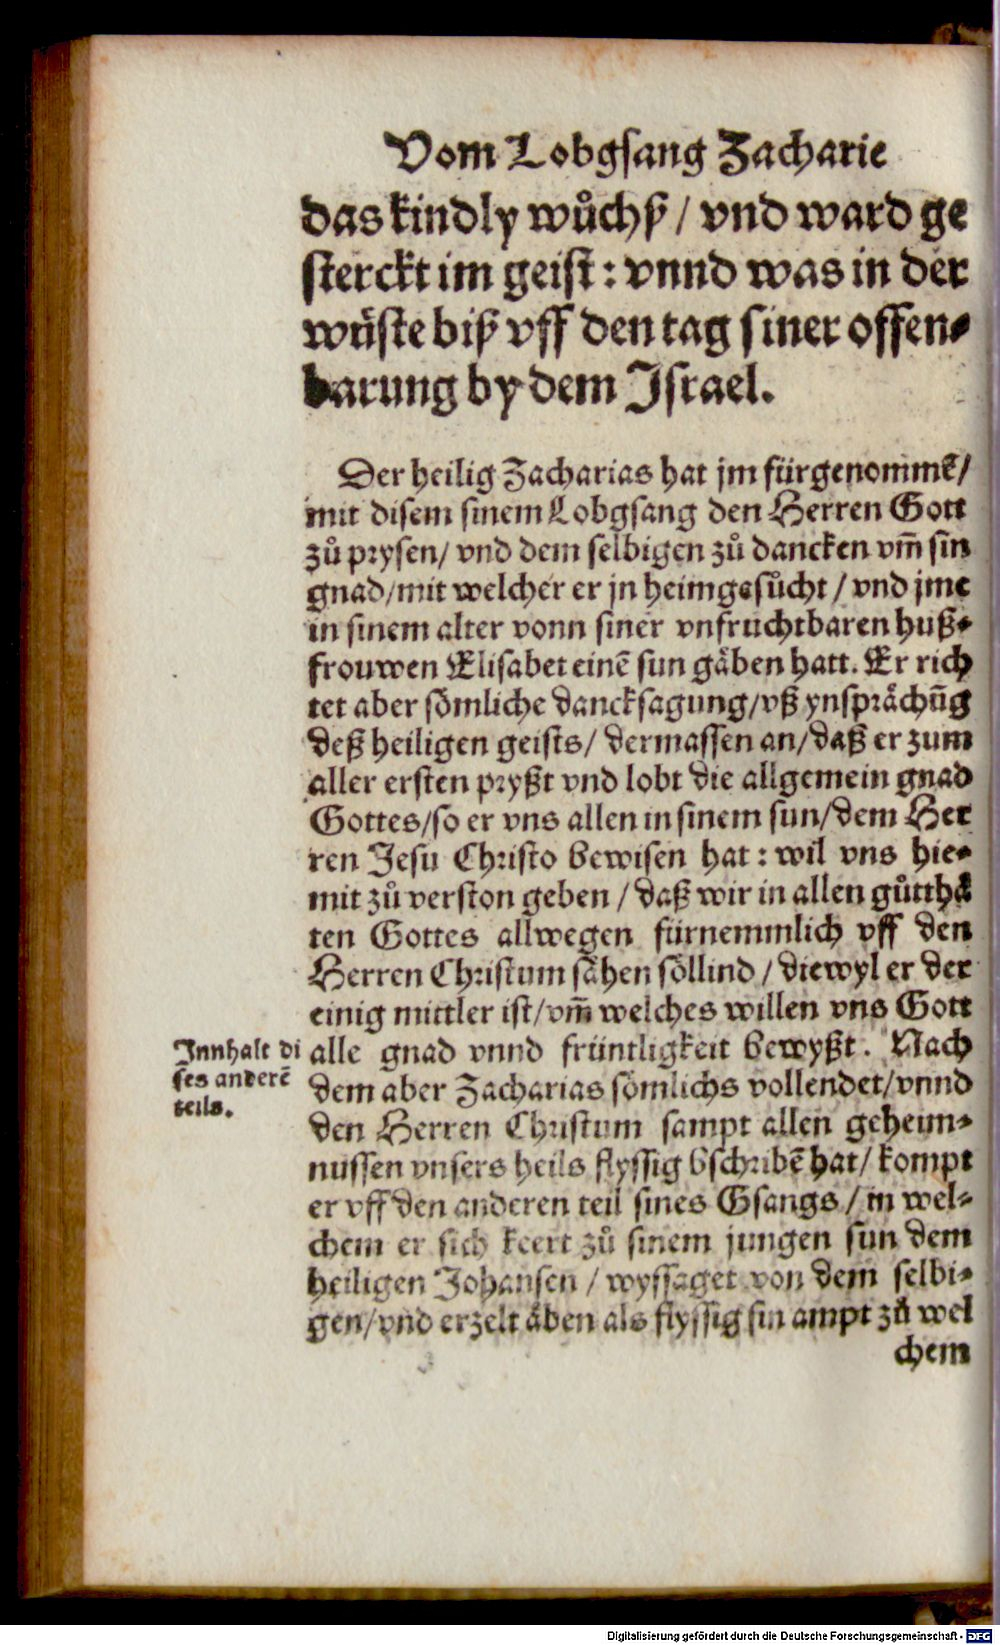 Vom Lobgsang Zacharie
das kindly wůchß / vnd ward ge
sterckt im geist : vnnd was in der
wuͤste biß vff den tag siner offen⸗
barung by dem Israel.
Der heilig Zacharias hat jm fürgenommē/
mit disem sinem Lobgsang den Herren Gott
zů prysen/ vnd dem selbigen zů dancken vm̄ sin
gnad/mit welcher er jn heimgesůcht / vnd jme
in sinem alter vonn siner vnfruchtbaren huß⸗
frouwen Elisabet einē sun gaͤben hatt. Er rich
tet aber soͤmliche dancksagung/vß ynspraͤchūg
deß heiligen geists/ dermassen an/daß er zum
aller ersten pryßt vnd lobt die allgemein gnad
Gottes/so er vns allen in sinem sun/dem Her
ren Jesu Christo bewisen hat : wil vns hie⸗
mit zů verston geben / daß wir in allen gůtthaͤ
ten Gottes allwegen fürnemmlich vff den
Herren Christum saͤhen soͤllind / diewyl er der
einig mittler ist/vm̄ welches willen vns Gott
alle gnad vnnd früntligkeit bewyßt. Nach
dem aber Zacharias soͤmlichs vollendet/vnnd
den Herren Christum sampt allen geheim⸗
nussen vnsers heils flyssig bschribē hat/ kompt
er vff den anderen teil sines Gsangs / in wel⸗
chem er sich keert zů sinem jungen sun dem
heiligen Johansen / wyssaget von dem selbi⸗
gen/vnd erzelt aͤben als flyssig sin ampt zů wel
chem
Innhalt di
ses anderē
teils.
Digitalisierung gefördert durch die Deutsche Forschungsgemeinschaft - DFG